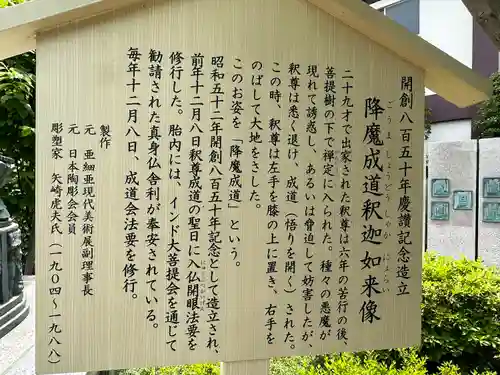 開創八百五十年慶讃記念造立
降魔成道釈迦如来像
ごうましょうどうしゃかにょらい
二十九才で出家された釈尊は六年の苦行の後、
菩提樹の下で禅定に入られた。種々の悪魔が
現れて誘惑し、あるいは脅迫して妨害したが、
釈尊は悉く退け、成道（悟りを開く）された。
この時、釈尊は左手を膝の上に置き、右手を
のばして大地をさした。
このお姿を「降魔成道」という。
昭和五十二年開創八百五十年記念として造立され、
前年十二月八日釈尊成道の聖日に入仏開眼法要を
にゅうぶつかいげん
修行した。胎内には、インド大菩提会を通じて
勧請された真身仏舎利が奉安されている。
毎年十二月八日、成道会法要を修行。
製作
元　亜細亜現代美術展副理事長
元　日本陶彫会会員
彫塑家　矢崎虎夫氏（一九〇四～一九八八）